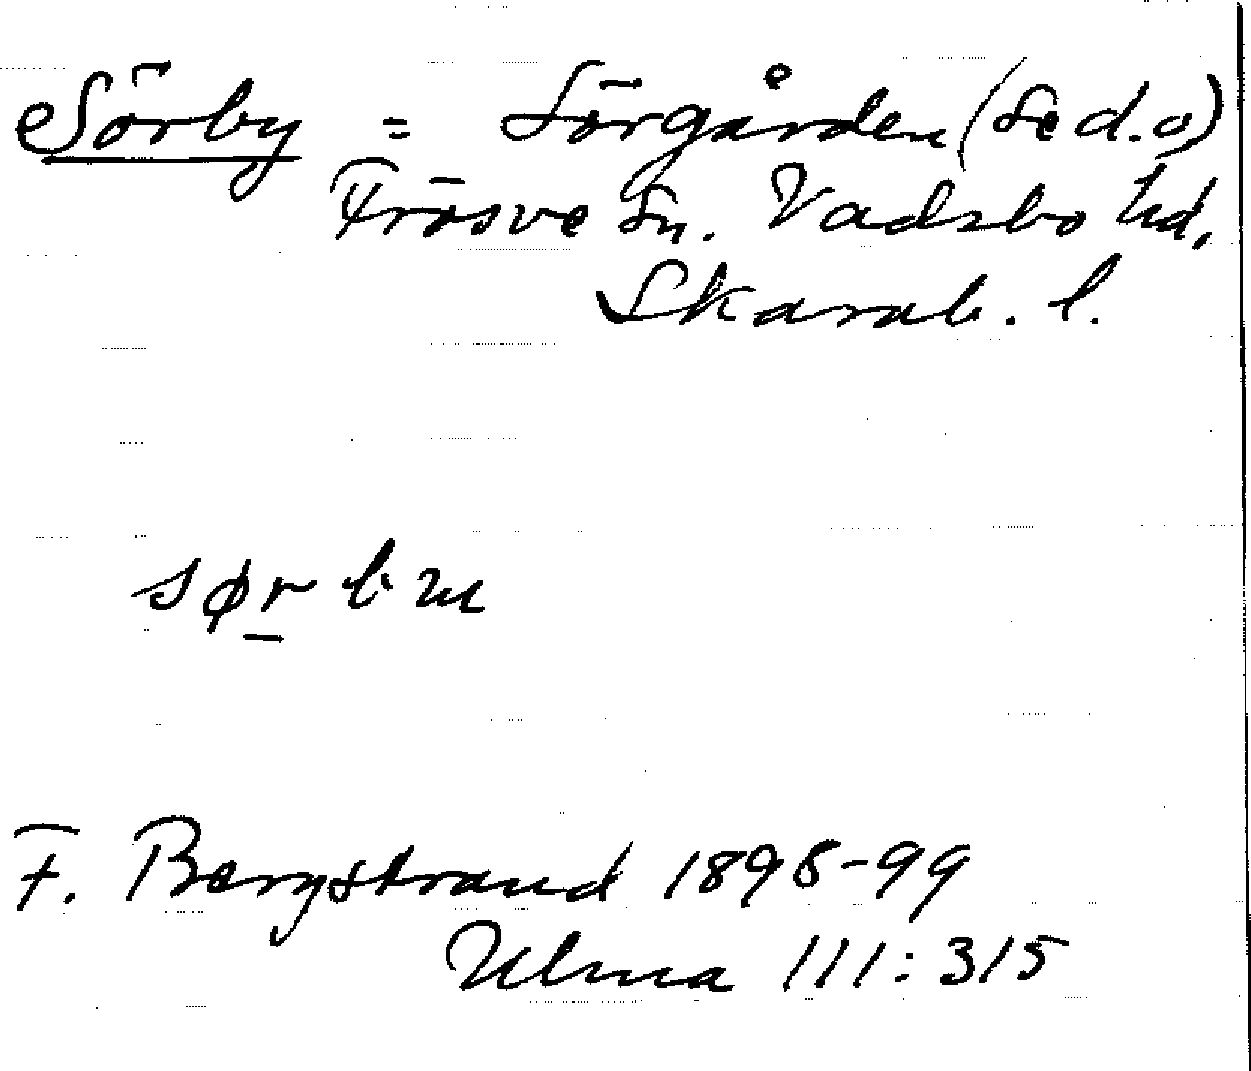 Sörby = Sörgården (Se d. o)
Frösve Sn. Vadsbo hd.
Skarab. l.
sør bɯ
F. Bergstrand 1898-99
Ulma 111:315